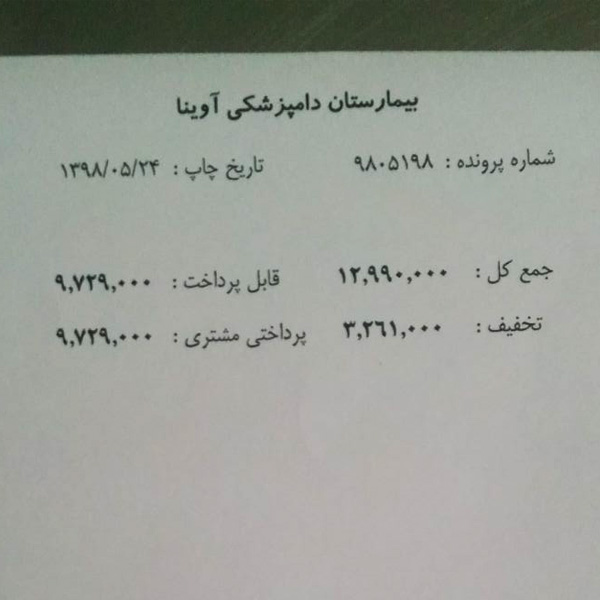 بیمارستان دامپزشکی آوینا
شماره پرونده : ۹۸۰۵۱۹۸ تاریخ چاپ : ۱۳۹۸/۰۵/۲۴
جمع کل : ۱۲,۹۹۰,۰۰۰ قابل پرداخت : ۹,۷۲۹,۰۰۰
تخفیف : ۳,۲۶۱,۰۰۰ پرداختی مشتری : ۹,۷۲۹,۰۰۰